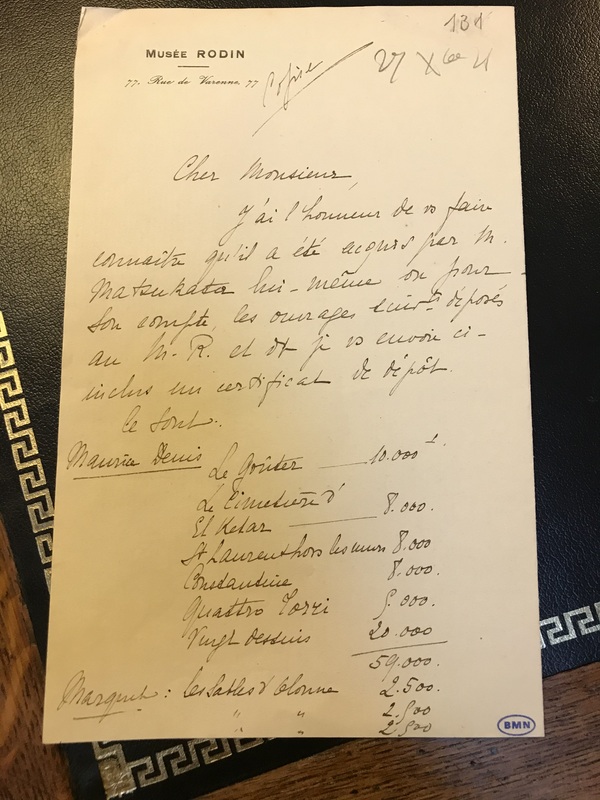 131
MUSÉE RODIN
77, Rue de Varenne, 77
Copie
27 X
Cher Monsieur,
J'ai l'honneur de vs faire
connaître qu'il a été acquis par M.
Matsukata lui-même ou pour
son compte, les ouvrages suivts déposés
au M.R. et dt je vs envoie ci-
inclus un certificat de dépôt.
Ce sont.
Maurice Denis Le Goûter 10.000
Le Cimetière d'
El Ketar 8.000.
St Laurent hors les murs 8.000
Constantine 8.000.
Quattro Torri 5.000.
Vingt dessins 20.000
59.000.
Marquet : Les Sables d'Olonne 2.500.
" " 2.500
" " 2.500
BMN